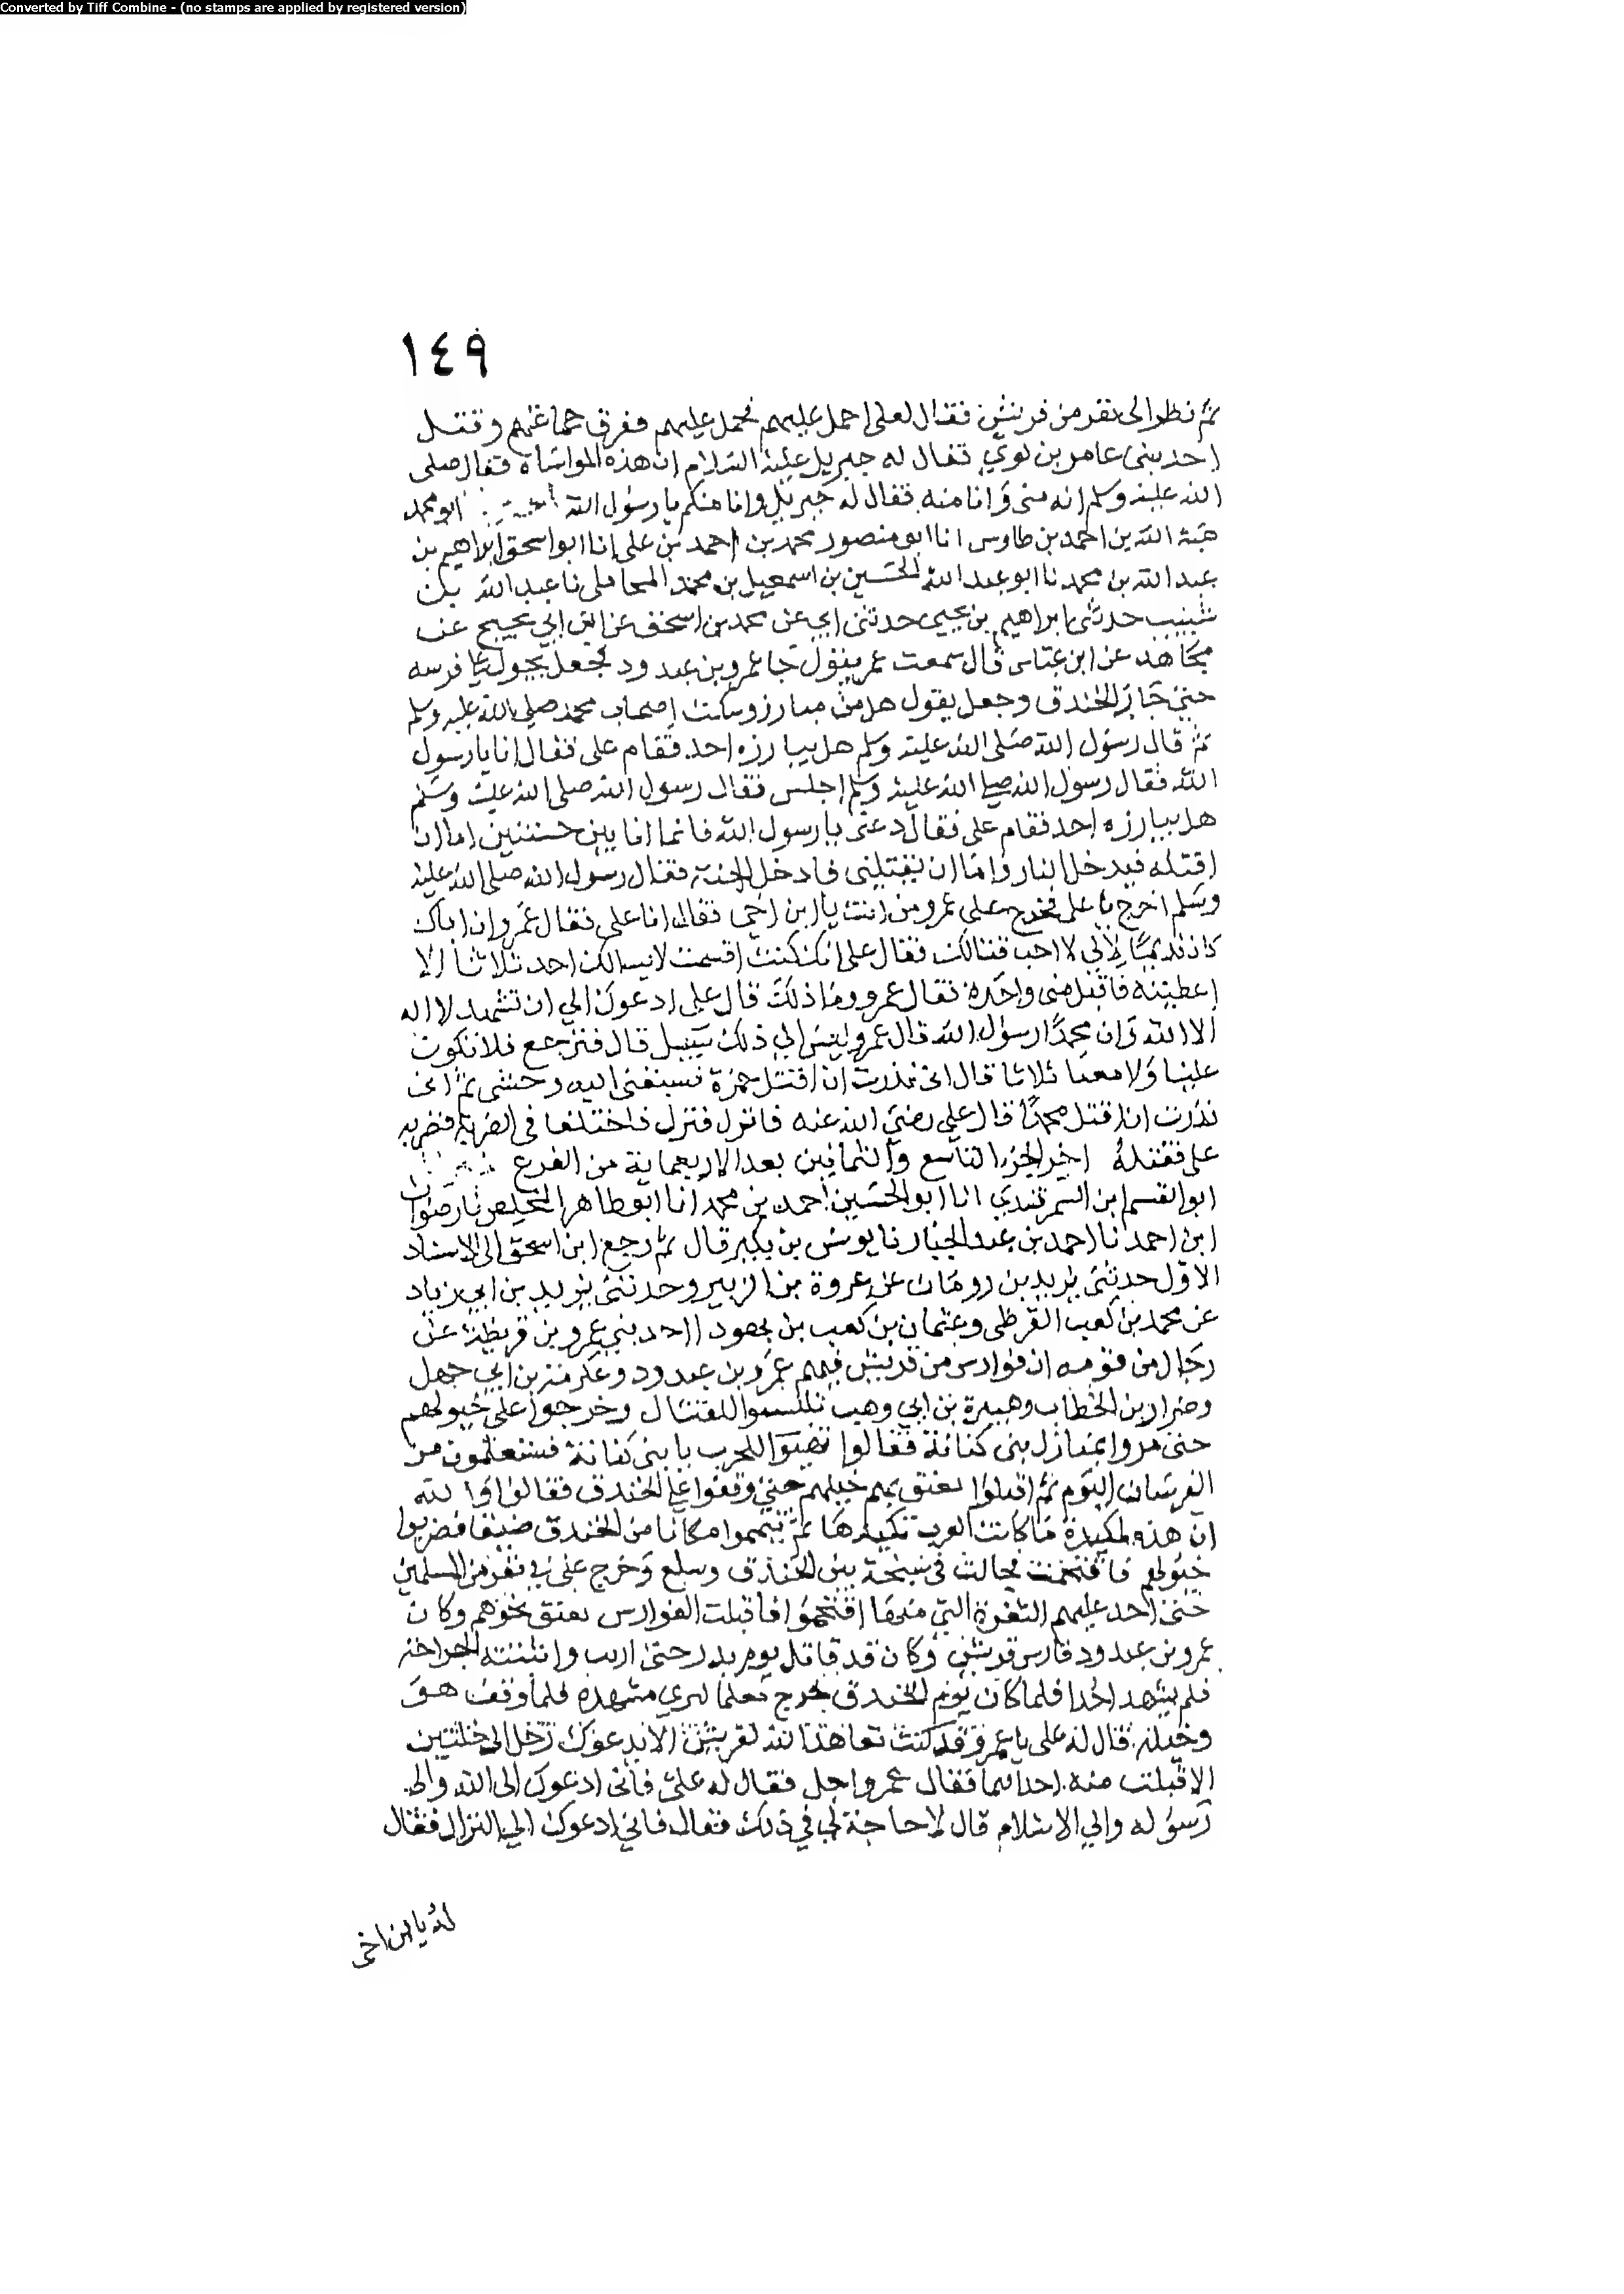 Converted by Tiff Combine - (no stamps are applied by registered version)
١٤٩
ثم نظر الى نفر من قريش فقال لعلى احمل عليهم فحمل عليهم ففرق جماعتهم وقتل
احد بنى عامر بن لوي فقال له جبريل عليه السلام ان هذه المواساة فقال صلى
الله عليه وسلم انه منى وانا منه فقال له جبريل وانا منكم يا رسول الله ابو محمد
هبة الله بن احمد بن طاوس انا ابو منصور محمد بن احمد بن على انا ابو اسحق ابراهيم بن
عبد الله بن محمد نا ابو عبد الله الحسين بن اسمعيل بن محمد المحاملى نا عبد الله بن
شبيب حدثنى ابراهيم بن يحيى حدثنى ابي عن محمد بن اسحق عن ابن ابي نجيح عن
مجاهد عن ابن عباس قال سمعت عمر يقول جا عمرو بن عبد ود فجعل يجول على فرسه
حتى جاز الخندق وجعل يقول هل من مبارز وسكت اصحاب محمد صلى الله عليه وسلم
ثم قال رسول الله صلى الله عليه وسلم هل يبارزه احد فقام على فقال انا يا رسول
الله فقال رسول الله صلى الله عليه وسلم اجلس فقال رسول الله صلى الله عليه وسلم
هل يبارزه احد فقام على فقال دعنى يا رسول الله فانما انا بين حسنتين اما ان
اقتله فيدخل النار واما ان يقتلنى فادخل الجنة فقال رسول الله صلى الله عليه
وسلم اخرج يا على فخرج على عمرو من انت يا ابن اخى فقال انا على فقال عمرو ان اباك
كان نديما لابي لا احب قتالك فقال على انك كنت اقسمت لا يسالك احد ثلاثا الا
اعطيته فاقبل منى واحدة فقال عمرو وما ذلك قال على ادعوك الي ان تشهد لا اله
الا الله وان محمدا رسول الله قال عمرو ليس الي ذلك سبيل قال فترجع فلا تكون
علينا ولا معنا ثلاثا قال انى نذرت ان اقتل حمزة فسبقنى اليه وحشى ثم انى
نذرت ان اقتل محمدا قال على رضي الله عنه فانزل فنزل فاختلفا فى الضربة فضربه
على فقتله اخر الجز التاسع والثمانين بعد الاربعماية من الفرع
ابو القسم ابن السمرقندي انا ابو الحسين احمد بن محمد انا ابو طاهر المخلص نا رضوان
ابن احمد نا احمد بن عبد الجبار نا يونس بن بكير قال ثم رجع ابن اسحق الى الاسناد
الاول حدثنى يزيد بن رومان عن عروة بن الزبير وحدثنى يزيد بن ابي زياد
عن محمد بن كعب القرظى وعثمان بن كعب بن يهود احد بني عمرو بن قريظة عن
رجال من قومه ان فوارس من قريش فيهم عمرو بن عبد ود وعكرمة بن ابي جهل
وضرار بن الخطاب وهبيرة بن ابي وهب تلبسوا للقتال وخرجوا على خيولهم
حتى مروا بمنازل بنى كنانة فقالوا تهيوا للحرب يا بنى كنانة فستعلمون من
الفرسان اليوم ثم اقبلوا تعنق بهم خيلهم حتى وقفوا على الخندق فقالوا والله
ان هذه لمكيدة ما كانت العرب تكيدها ثم تيمموا مكانا من الخندق ضيقا فضربوا
خيولهم فاقتحمت فجالت فى سبخة بين الخندق وسلع وخرج على في نفر من المسلمين
حتى اخذ عليهم الثغرة التي منها اقتحموا فاقبلت الفوارس تعنق نحوهم وكان
عمرو بن عبد ود فارس قريش وكان قد قاتل يوم بدر حتى ارتث واثبتته الجراحة
فلم يشهد احدا فلما كان يوم الخندق خرج معلما ليرى مشهده فلما وقف هو
وخيله قال له على يا عمرو قد كنت تعاهد الله لقريش الا يدعوك رجل الى خلتين
الا قبلت منه احداهما فقال عمرو اجل فقال له على فانى ادعوك الى الله والى
رسوله والي الاسلام قال لا حاجة لي في ذلك فقال فاني ادعوك الي النزال فقال
له يا ابن اخى